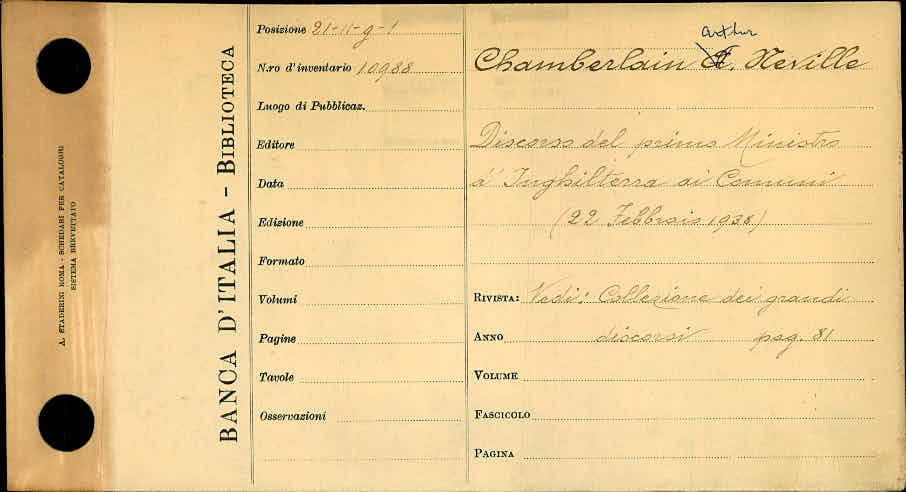 A. STADERINI ROMA - SCHEDARI PER CATALOGHI
SISTEMA BREVETTATO
BANCA D'ITALIA - BIBLIOTECA
Posizione 21-11-g-1
N.ro d'inventario 10988
Luogo di Pubblicaz.
Editore
Data
Edizione
Formato
Volumi
Pagine
Tavole
Osservazioni
Arthur
Chamberlain A. Neville
Discorso del primo Ministro
d'Inghilterra ai Comuni
(22 Febbraio 1938)
RIVISTA: Vedi: Collezione dei grandi
ANNO discorsi pag. 81
VOLUME
FASCICOLO
PAGINA